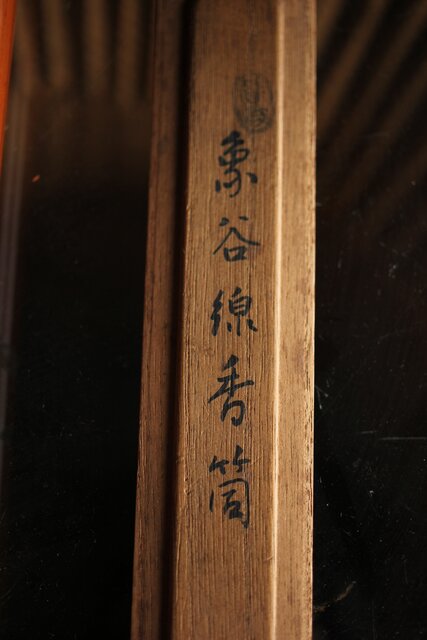 象谷線香筒